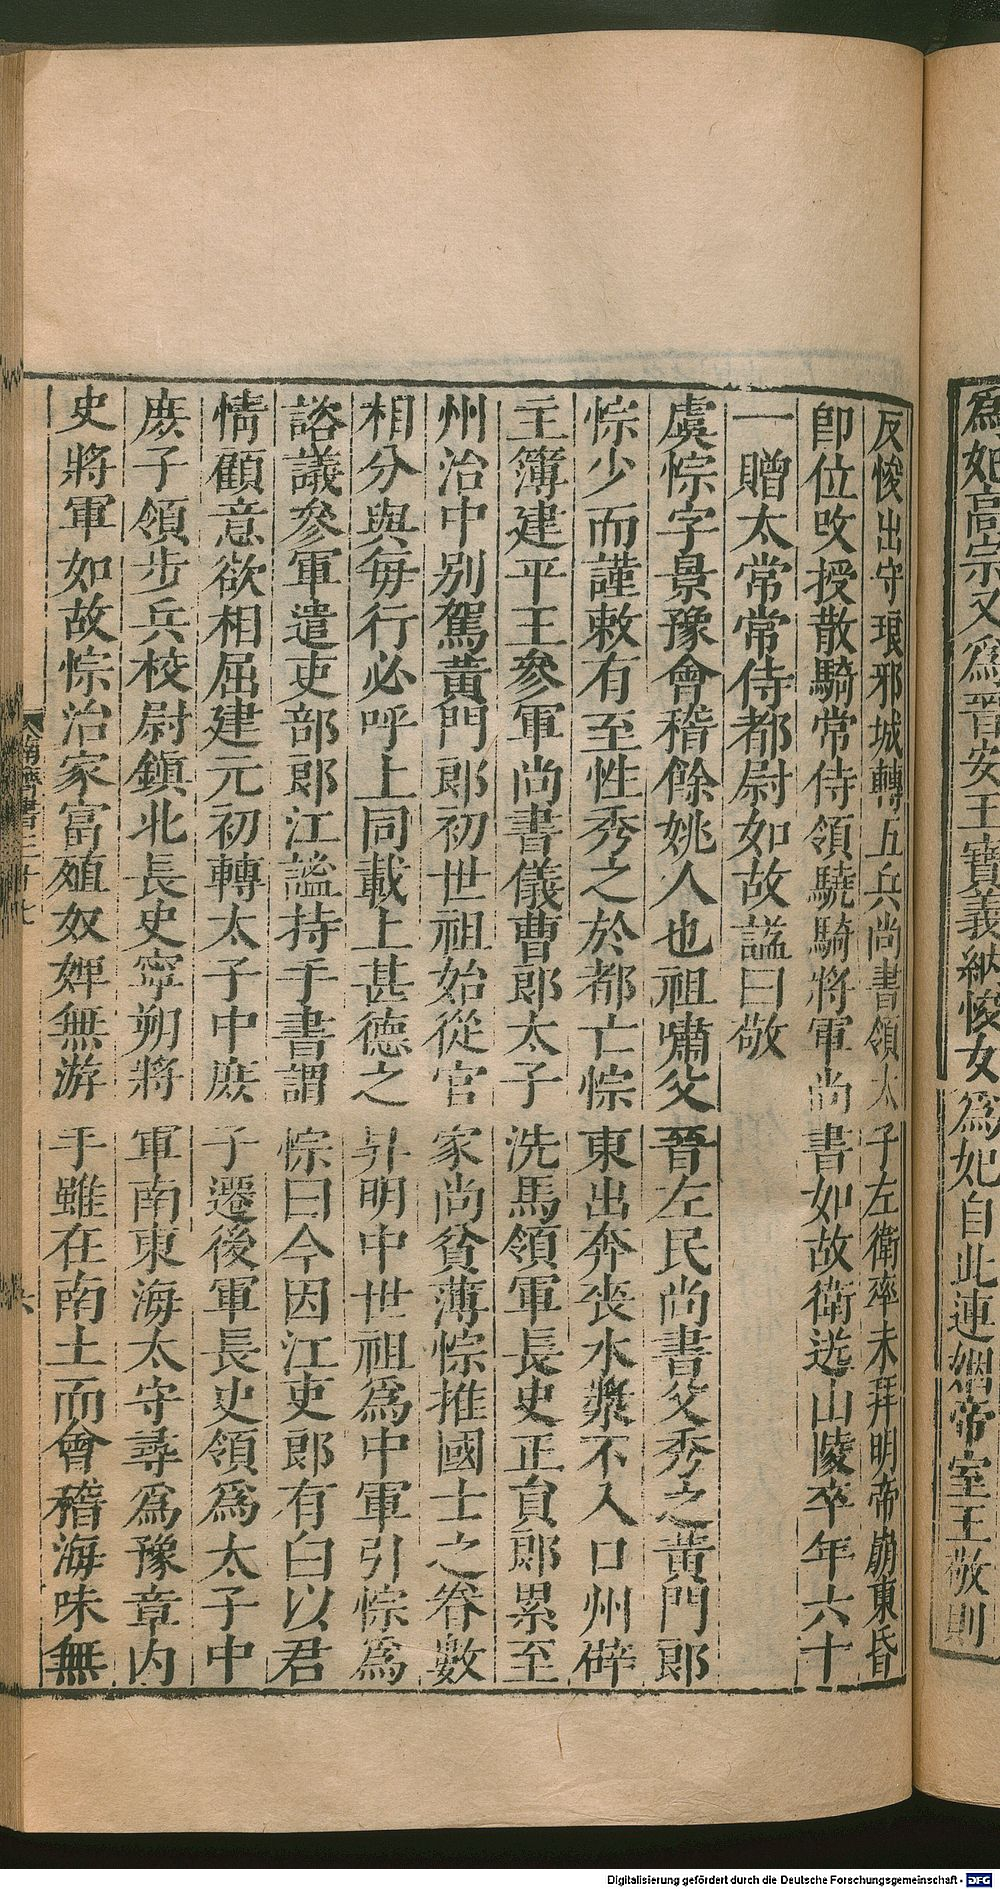 爲妃高宗又爲晉安王寶義納悛女爲妃自此連媚帝室王敬則
反悛出守琅邪城轉五兵尚書領太子左衛率未拜明帝崩東昏
卽位改授散騎常侍領驍騎將軍尚書如故衛送山陵卒年六十
一贈太常常侍都尉如故諡曰敬
虞悰字景豫會稽餘姚人也祖嘯父晉左民尚書父秀之黃門郎
悰少而謹敕有至性秀之於都亡悰東出奔喪水漿不入口州辟
主簿建平王參軍尚書儀曹郎太子洗馬領軍長史正員郎累至
州治中別駕黃門郎初世祖始從官家尚貧薄悰推國士之眷數
相分與每行必呼上同載上甚德之昇明中世祖爲中軍引悰爲
諮議參軍遣吏部郎江謐持手書謂悰曰今因江吏郎有白以君
情顧意欲相屈建元初轉太子中庶子遷後軍長史領爲太子中
庶子領步兵校尉鎮北長史寧朔將軍南東海太守尋爲豫章內
史將軍如故悰治家富殖奴婢無游手雖在南土而會稽海味無
南齊書三十七
六
Digitalisierung gefördert durch die Deutsche Forschungsgemeinschaft - DFG